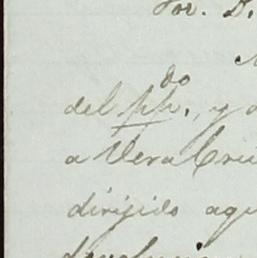 Sor. D.
del pp.do, y
a Vera Cruz
dirijido aqu